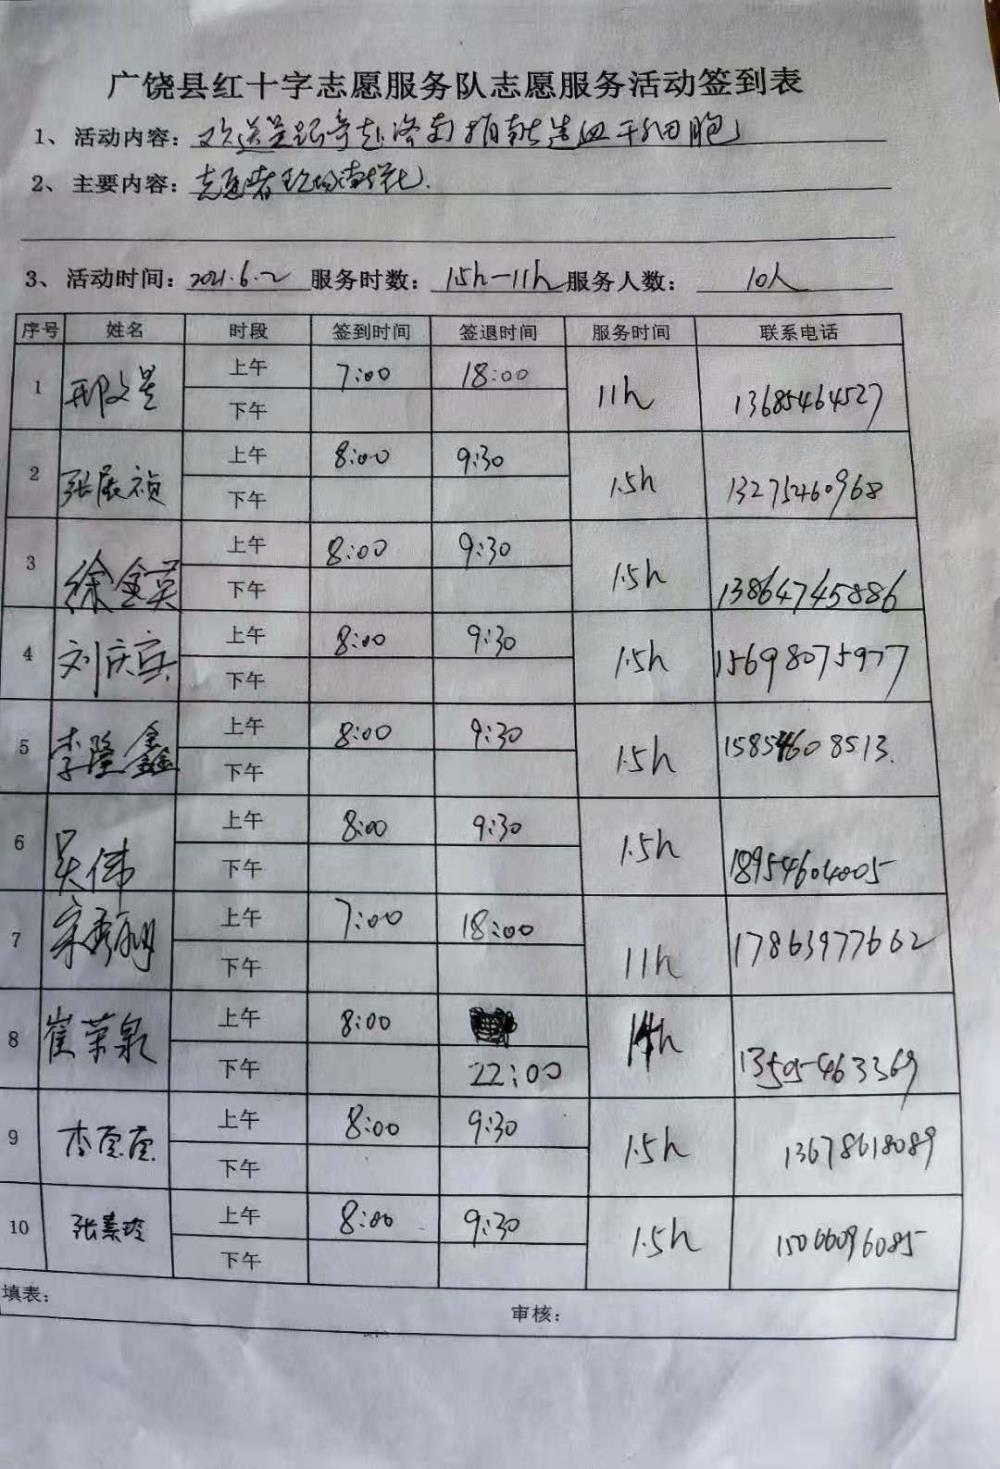 广饶县红十字志愿服务队志愿服务活动签到表
1、活动内容：欢送吴跃奇赴济南捐献造血干细胞
2、主要内容：志愿者
3、活动时间：2021.6.2 服务时数：1.5h—11h 服务人数：10人
序号 姓名 时段 签到时间 签退时间 服务时间 联系电话
1 邢文星 上午 7:00 18:00 11h 13685464527
下午
2 张展祯 上午 8:00 9:30 1.5h 13275460968
下午
3 徐金英 上午 8:00 9:30 1.5h 13864745886
下午
4 刘庆宾 上午 8:00 9:30 1.5h 15698075977
下午
5 李隆鑫 上午 8:00 9:30 1.5h 15854608513.
下午
6 吴伟 上午 8:00 9:30 1.5h 18954604005
下午
7 宋秀明 上午 7:00 18:00 11h 17863977662
下午
8 崔荣泉 上午 8:00 14h 13505463369
下午 22:00
9 李 上午 8:00 9:30 1.5h 13678618089
下午
10 张素玲 上午 8:00 9:30 1.5h 15066096085
下午
填表： 审核：